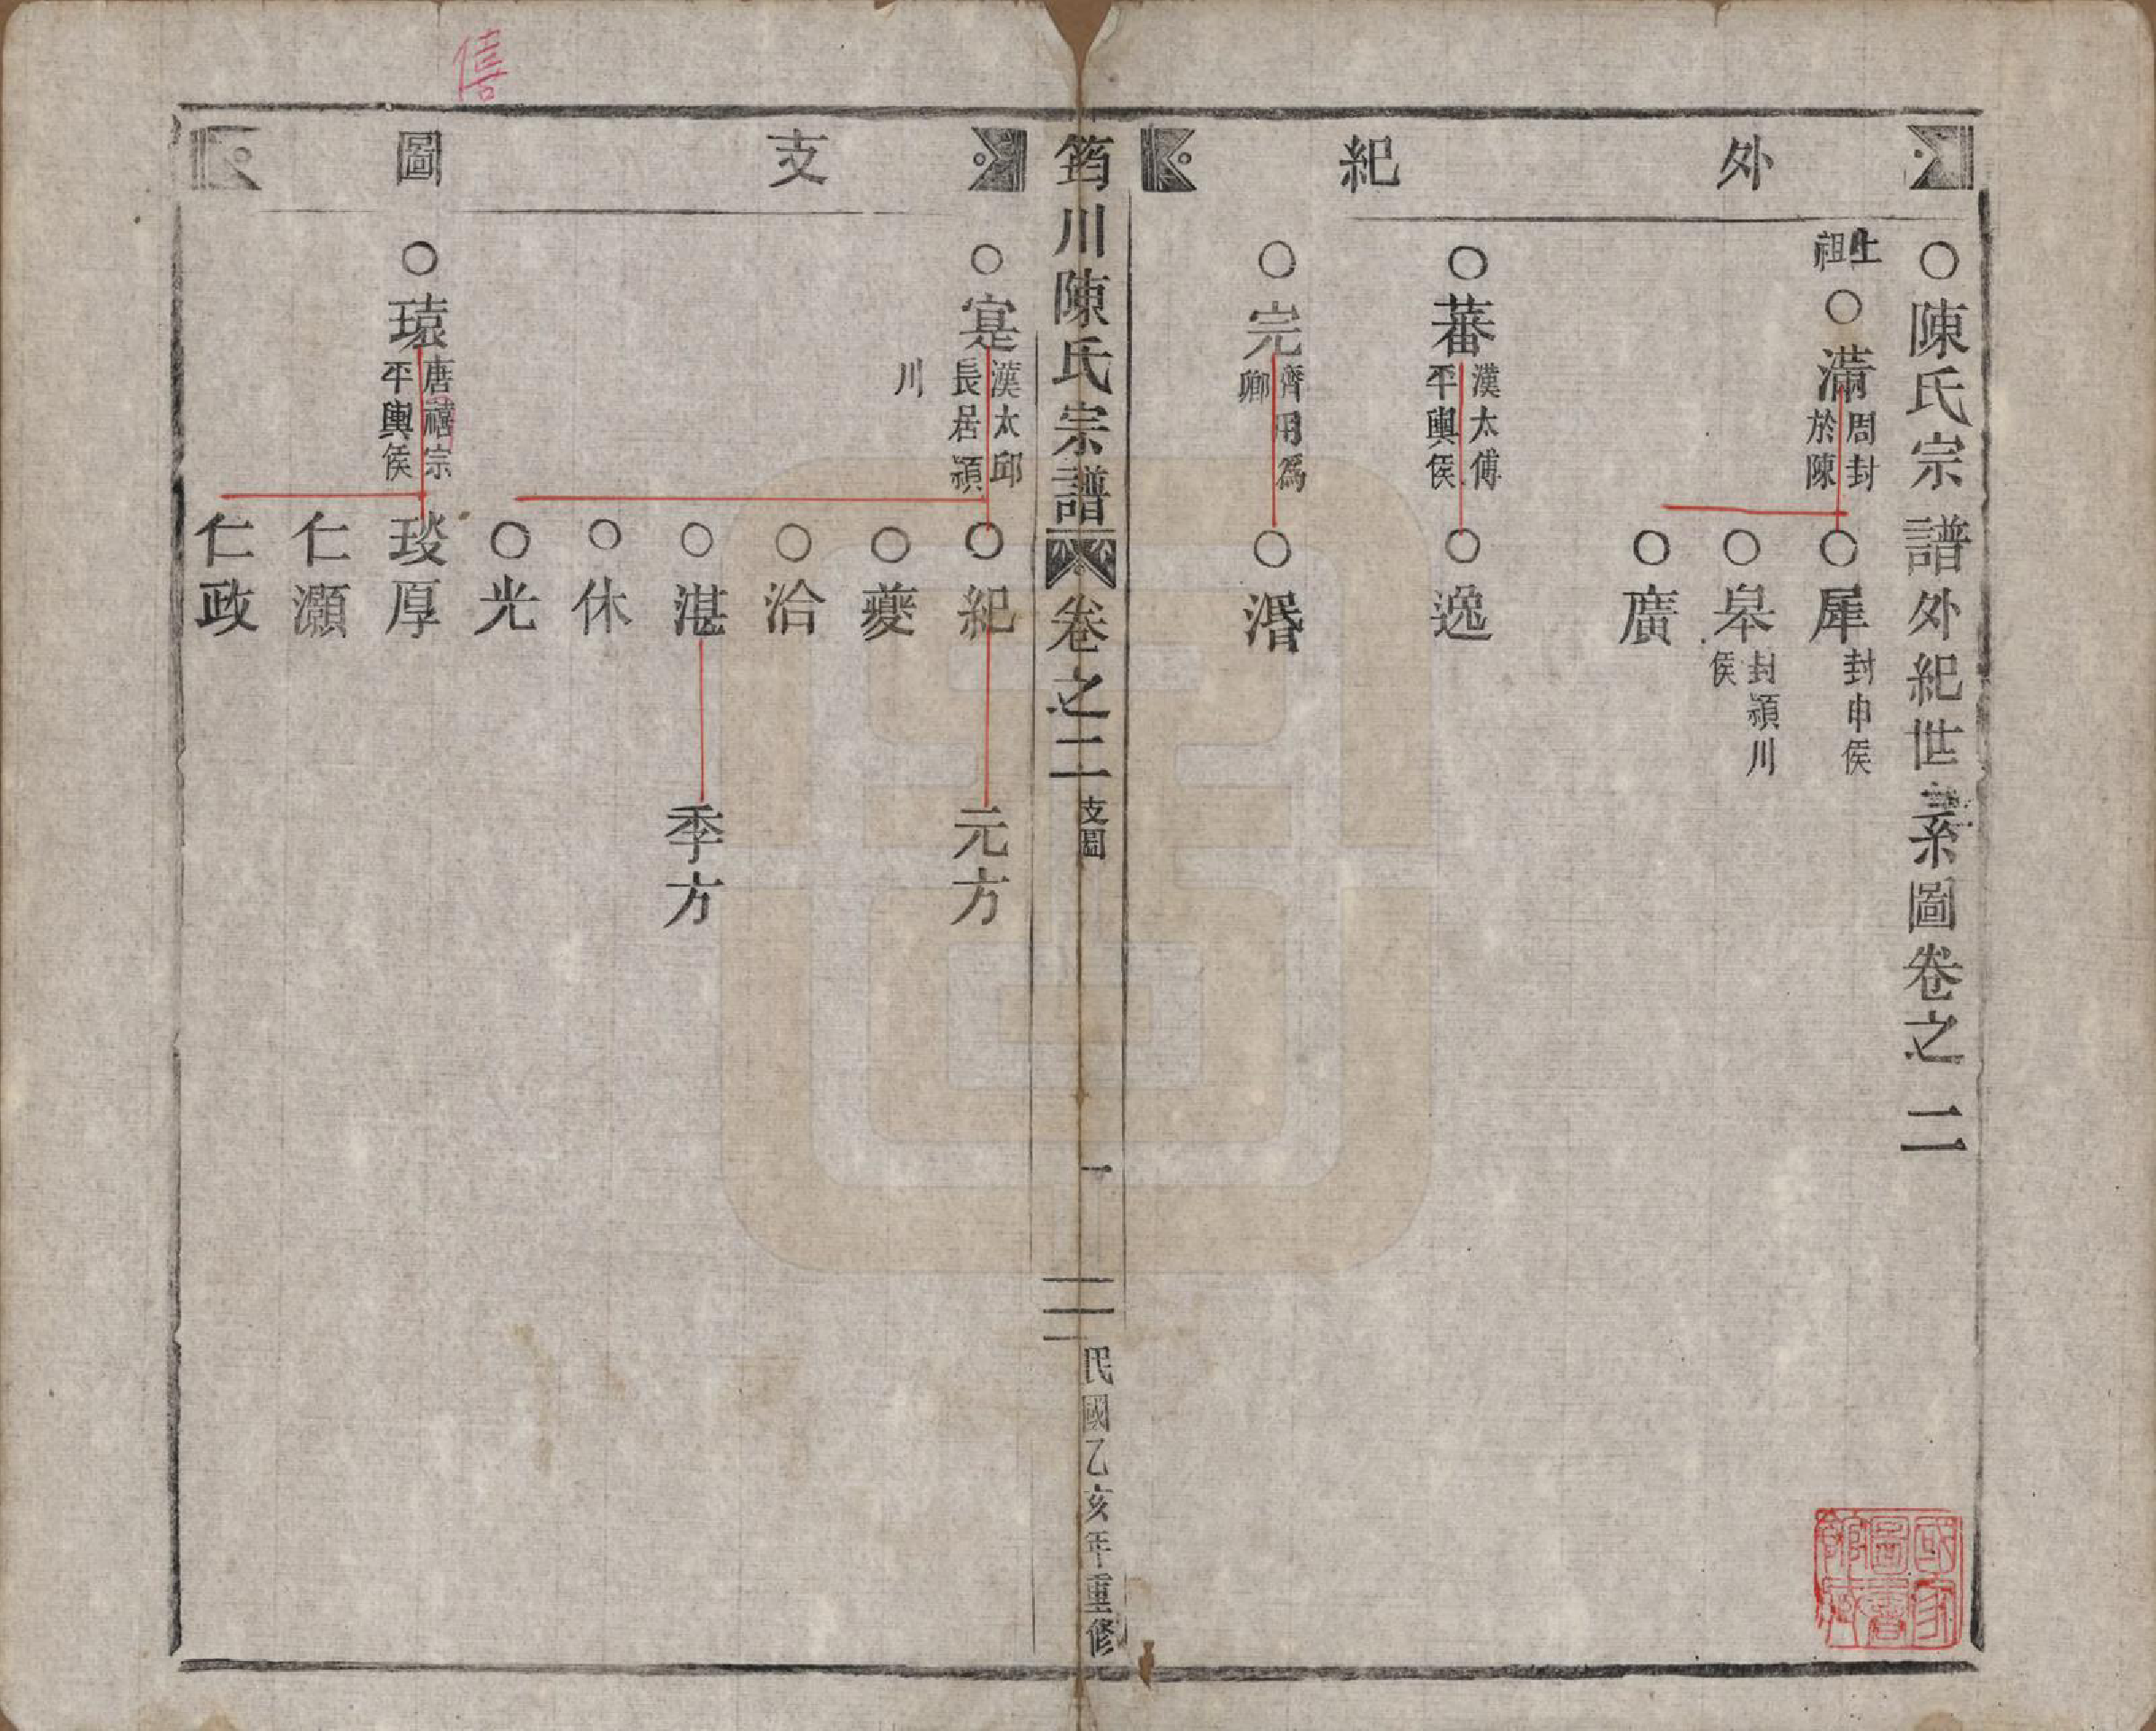 外紀
○陳氏宗譜外紀世系圖卷之二
上祖○滿 周封於陳
○犀 封申侯
○皋 封潁川侯
○廣
○蕃 漢太傅平輿侯
○逸
○完 齊用爲卿
○湣
筠川陳氏宗譜 卷之二 支圖 一 民國乙亥年重修
支圖
○寔 漢太邱長居潁川
○紀
元方
○夔
○洽
○湛
季方
○休
○光
○瑗 唐禧宗平輿侯
琰厚
仁灝
仁政
僖
國家圖書館藏